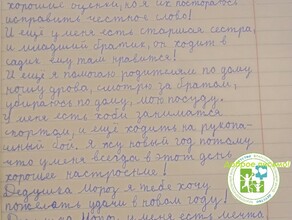 хорошие оценки, но я их постораюсь
исправить честное слово!
И ещё у меня есть старшая сестра,
и младший братик, он ходит в
садик ему там нравится!
И ещё я помогаю родителям по дому
ношу дрова, смотрю за братом,
убираюсь по дому, мою посуду.
У меня есть хоби заниматся
спортом, и ещё ходить на рукопа-
шный бой. Я жду новый год потому
что у меня всегда в этот день
хорошее настроение!
Дедушка мороз я тебе хочу
пожелать удачи в новом году!
Дедушка Мороз, у меня есть мечта